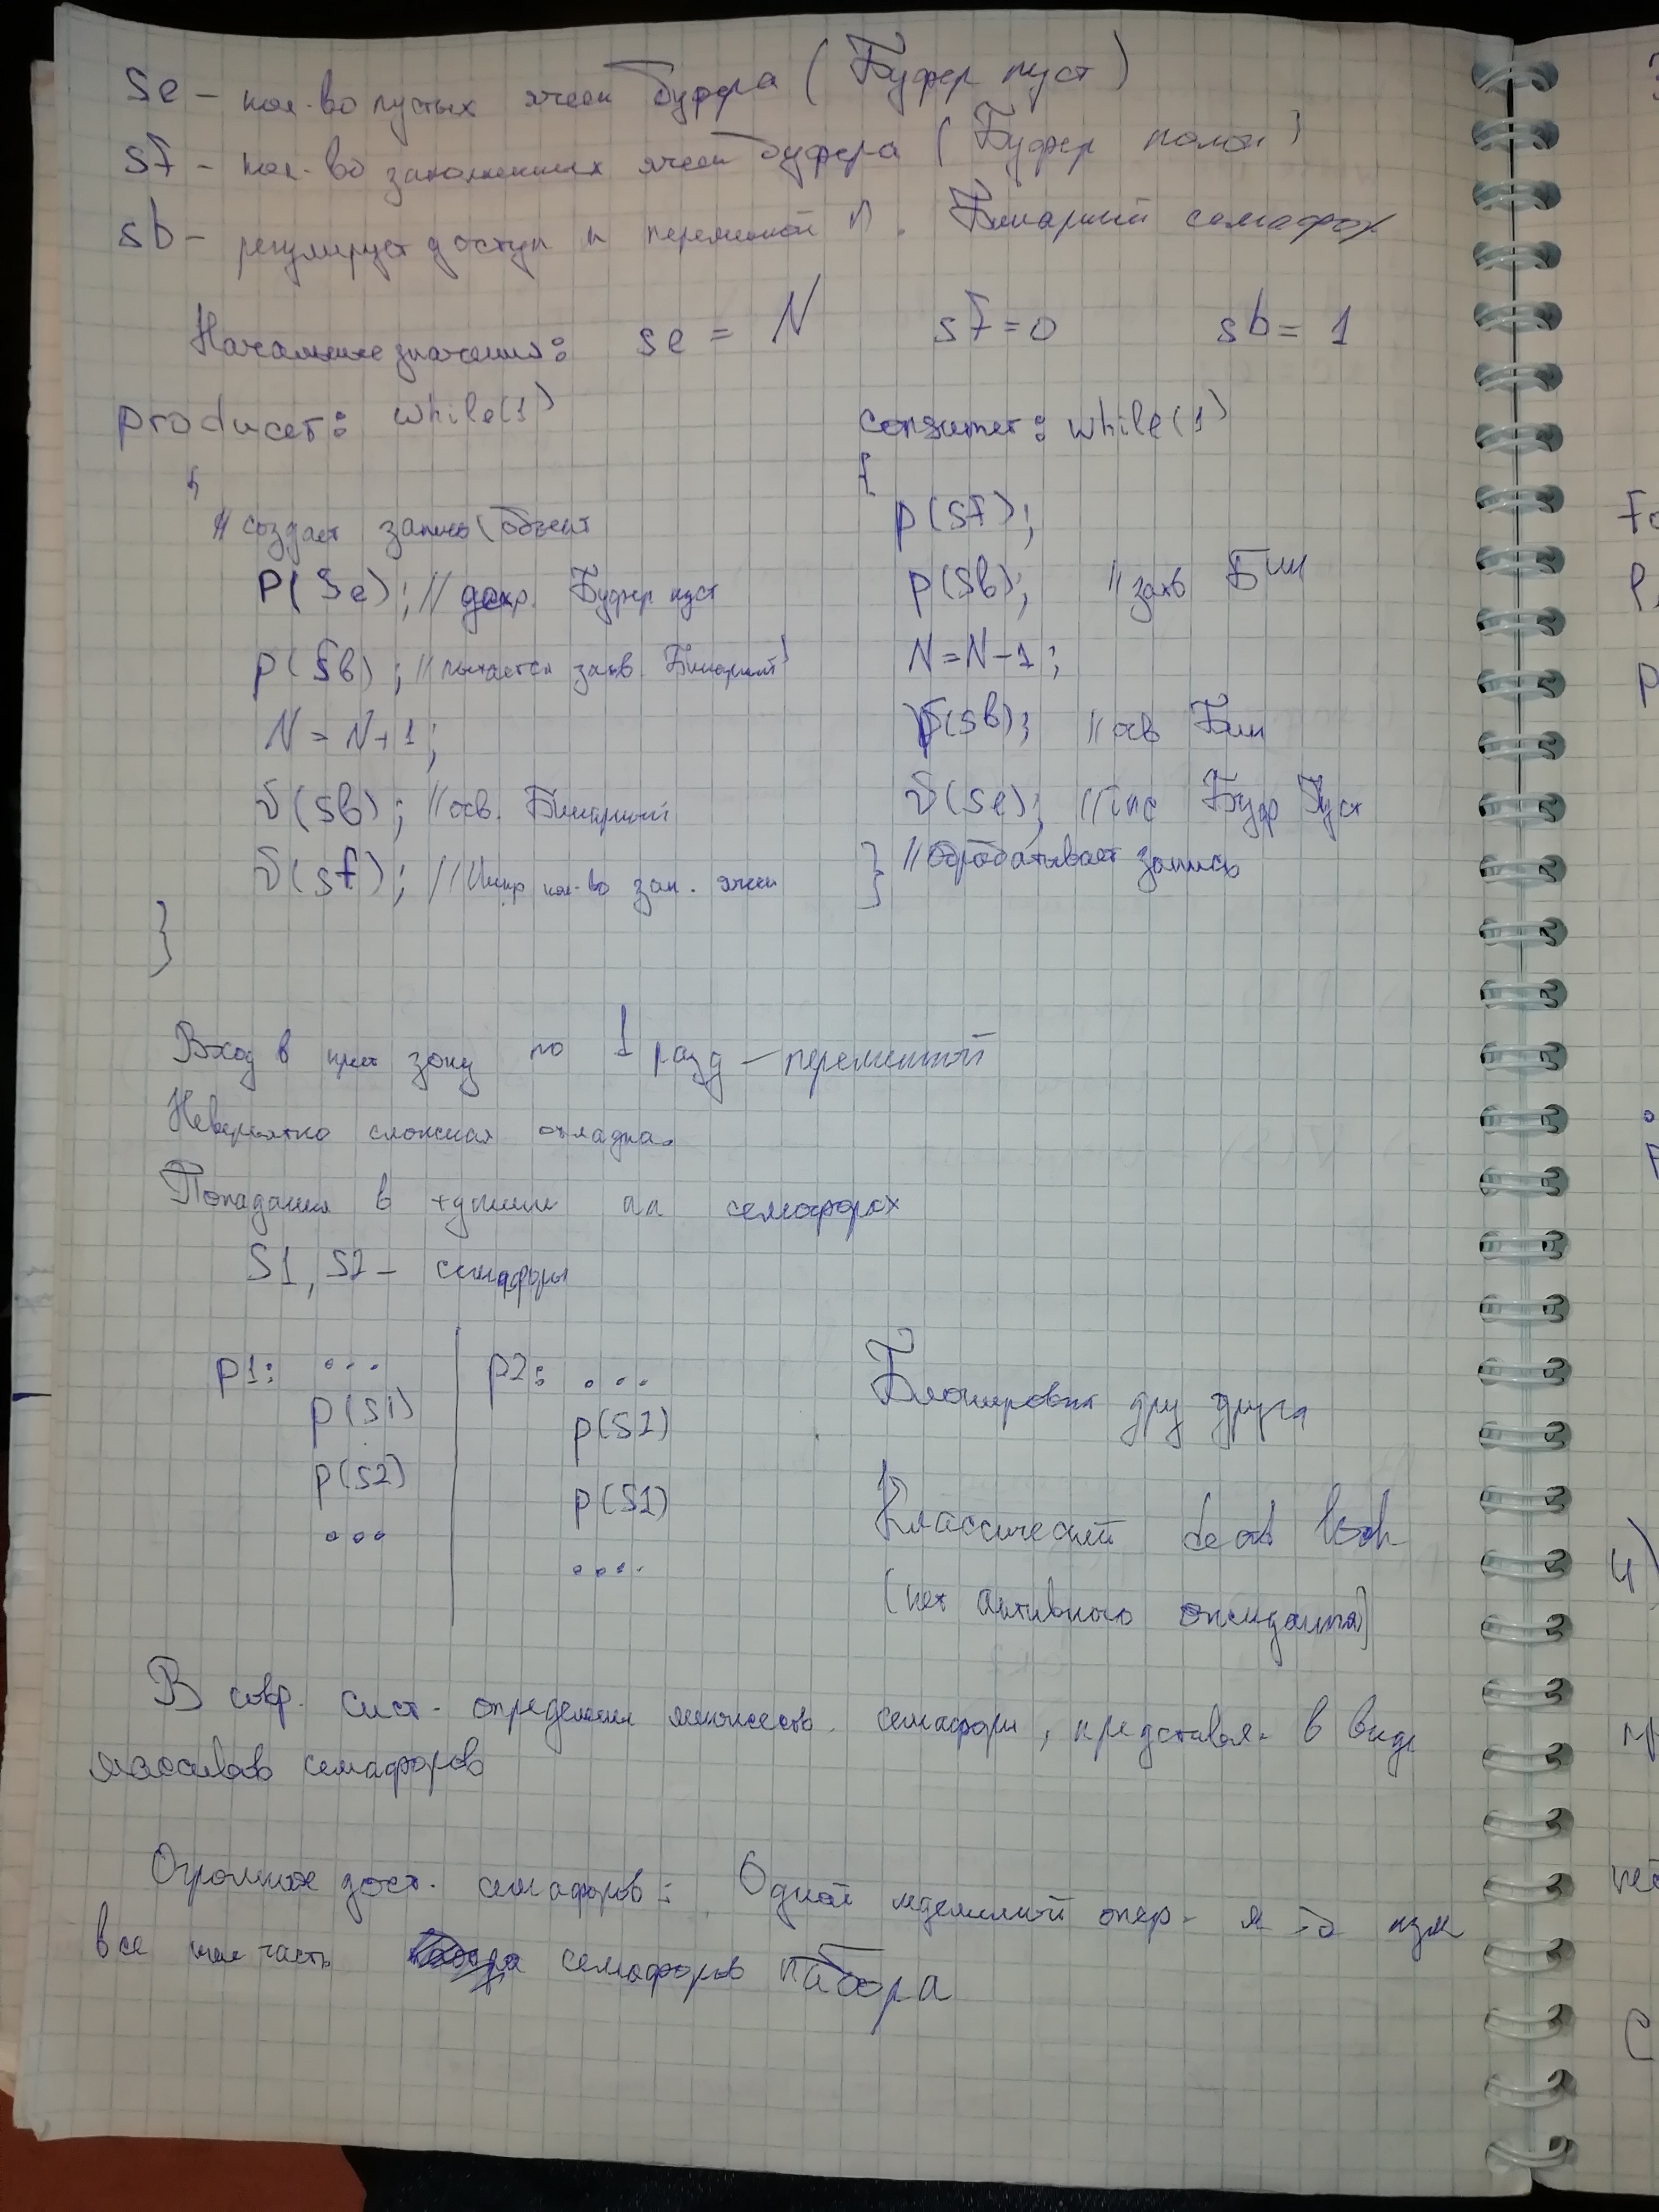 se – кол-во пустых ячеек буфера (Буфер пуст)
sf – кол-во заполненных ячеек буфера (Буфер полон)
sb – регулирует доступ к переменной N. Бинарный семафор
Начальные значения: se = N sf = 0 sb = 1
producer: while(1)
{
// создает запись/объект
P(Se); // декр. Буфер пуст
P(Sb); // пытается захв. Бинарный
N = N+1;
V(Sb); // осв. Бинарный
V(sf); // Инкр кол-во зап. ячеек
}
consumer: while(1)
{
P(Sf);
P(Sb); // захв Бин
N = N-1;
V(Sb); // осв Бин
V(Se); // инс Буф Пуст
} // Обрабатывает запись
Вход в крит зону по 1 разд – переменной
Невероятно сложная отладка.
Попадания в тупики на семафорах
S1, S2 – семафоры
P1: ...
P(S1)
P(S2)
...
P2: ...
P(S2)
P(S1)
....
Блокировка дру друга
Классический dead lock
(нет активного ожидания)
В совр. сист. определени множеств. семафоры, представл. в виде
массивов семафоров
Огромное дост. семафоров: Одной неделимой опер- изм
все или часть семафоров набора